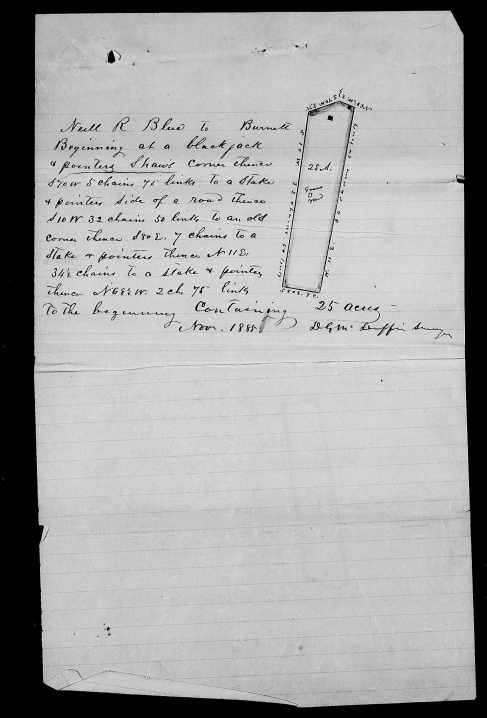 Neill R Blue to Burnett
Beginning at a blackjack
& pointers Shaws corner thence
S70W 5 chains 75 links to a stake
& pointers side of a road thence
S10W 32 chains 50 links to an old
corner thence S80E. 7 chains to a
stake & pointers thence N11E.
34½ chains to a stake & pointers
thence N68½W. 2 ch. 75 links
to the beginning Containing 25 acres
Nov. 1885
D G Mc Duffie
25 A.